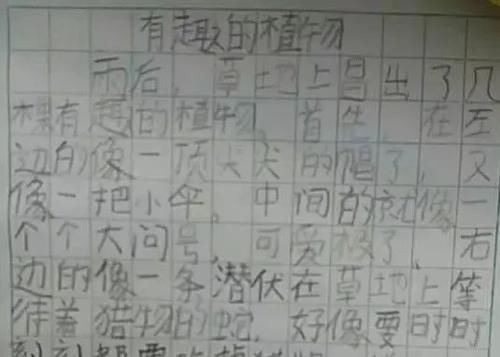 有趣的植物
雨后，草地上冒出了几
棵有趣的植物，首先，在左
边的像一顶尖尖的帽子，又
像一把小伞，中间的就像一
个个大问号，可爱极了，右
边的像一条潜伏在草地上等
待着猎物的蛇，好像要时时
刻刻都要